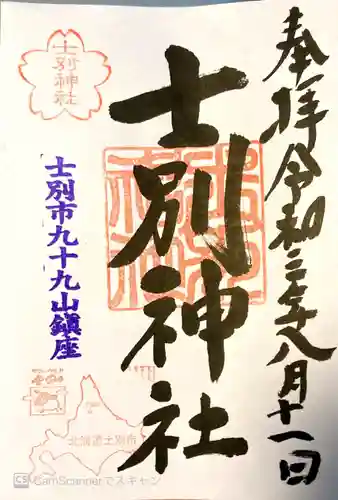 奉拝 令和三年八月十一日
士別神社
士別神社
士別市九十九山鎮座
北海道士別市
CS CamScannerでスキャン